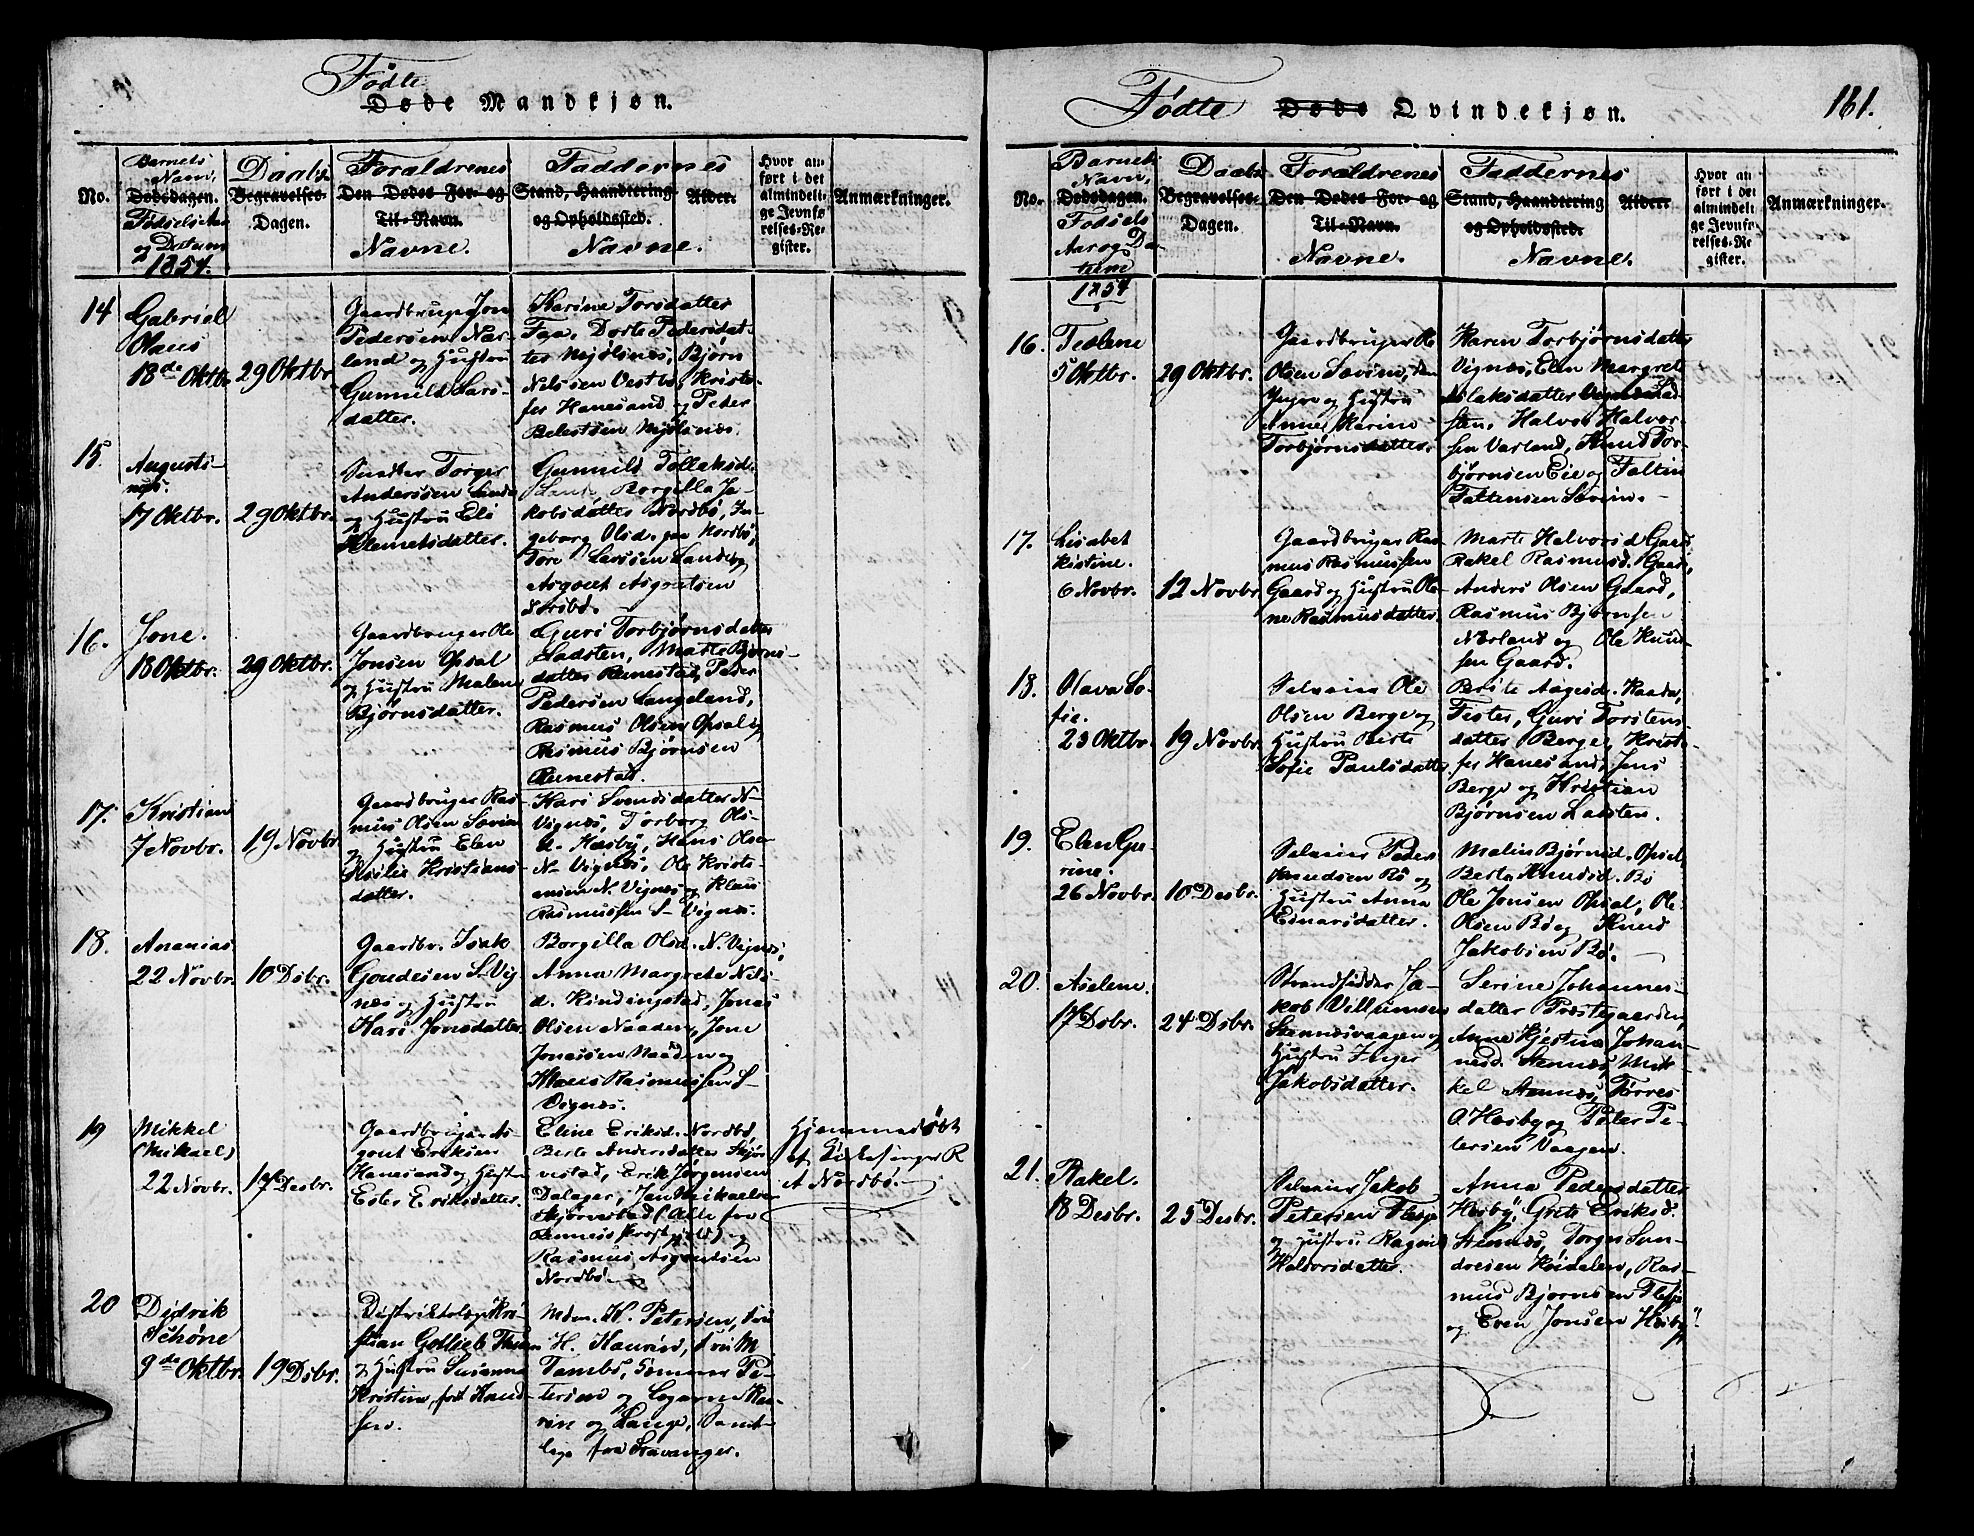 Fødte
Døde Mandkjøn.
No.
Barnets Navn.
Dødsdagen.
Fødsels Aar
og Datum
1854.
Daabs
Begravelses-
Dagen.
Foræeldrenes
Den Dødes For- og
Til-Navn.
Navne.
Faddernes
Stand, Haandtering
og Opholdssted.
Navne.
Alder.
Hvor an-
ført i det
almindeli-
ge Jevnfø-
relses-Re-
gister.
Anmærkninger.
14
Gabriel
Olaus
18de Oktbr.
29 Oktbr.
Gaardbruger Jon
Pedersen Nær-
land og Hustru
Gunnild Lars-
datter.
Karine Torsdatter
Faa, Dorte Pedersdat-
ter Mjølsnes, Bjørn
Nilssen Vestbø, Kristo-
fer Hanesand og Peder
Mjølsnæs.
15.
Augusti-
nus.
17 Oktbr.
29 Oktbr.
Torger
Anderssen Lande
og Hustru Eli
Klemetsdatter.
Gunnild Tollaksd.
Lande Borgilla Ja-
kobsdatter Nordbø, In-
geborg Olsd. paa Nordbø,
Tore Larssen Lande og
Asgout Asgoutsen
16.
Jone.
18 Oktbr.
29 Oktbr.
Gaardbruger Ole
Jonsen Opsal
og Hustru Malene
Bjørnsdatter.
Guri Torbjørnsdatter
Ladsten, Marte Bjørns-
datter Rennestad, Peder
Pedersen Langeland,
Rasmus Olsen Opsal og
Rasmus Bjørnsen
Rennestad.
17.
Kristian
7 Novbr.
19 Novbr.
Gaardbruger Ras-
mus Olsen Sævien
og Hustru Elen
Kristians-
datter.
Kari Svendsdatter N-
Vignæs, Torborg Ols-
d. Hæsby, Hans Olsen
N- Vignæs, Ole Kristi-
ansen N. Vignæs og Klaus
Rasmussen S- Vignæs.
18.
Ananias
22 Novbr.
10 Dsbr.
Gaardbr. Isak
Goudesen S-Vig-
næs og Hustru
Kari Jonsdatter.
Borgilla Olsd. N. Vignæs,
Anna Margrete Nils-
d. Kindingstad, Jonas
Olsen Naaden, Jone
Jonassen Naaden og
Klaus Rasmussen S-
Vignæs.
19
Mikkel
(Mikael)
22 Novbr.
17 Desbr.
Gaardbruger As-
gout Eriksen
Hanesand og Hustru
Ester Eriksdatter.
Eline Eriksd. Nordbø,
Berte Andersdatter Skjør-
vestad, Erik Jørgensen
Dalager, Jan Mikaelsen
Skjørvestad (Alle fra
Rennesø Præstgjeld) og
Rasmus Asgoutsen
Nordbø.
Hjemmedøbt
af Kirkesanger R
A Nordbø.
20
Didrik
Schøne
9de Oktbr.
19 Dsbr.
Distriktslæge Kri-
stian Gotlieb Thu
og Hustru Susanna
Kristine født Knud-
sen.
Mdm. H. Petersen, Fru
H. Hausvid, Fru M
Tambs, Sommer Pe-
tersen og Logarn Ka-
rine og Lange, Samt-
lige fra Stavanger.
Fødte Døde Qvindekjøn.
161.
No.
Barnets
Navn.
Dødsdagen.
Fødsels
Aar og Da-
tum
1854
Daabs
Begravelses-
Dagen.
Forældrenes
Den Dødes For- og
Til-Navn.
Navne.
Faddernes
Stand, Haandtering
og Opholdssted.
Navne.
Alder.
Hvor an-
ført i det
almindeli-
ge Jevnfø-
relses-Re-
gister.
Anmærkninger.
16.
Teolene
5 Oktbr.
29 Oktbr.
Gaardbruger Ole
Olsen Sævien, den
Yngre og Hustru
Anne Karine
Torbjørnsdatter.
Karen Torbjørnsdatter
Vignæs, Elen Margret
Aslaksdatter Lad-
sten, Halvor Halvor-
sen Varland, Knud Tor-
bjørnsen Eie og Faltin
Faltinsen Sævien.
17.
Lisabet
Kistine.
6 Novbr.
12 Novbr.
Gaardbruger Ras-
mus Rasmussen
Gaard og Hustru Ole-
ne Rasmusdatter.
Marte Halvorsd. Gaard,
Rakel Rasmusd. Gaard,
Anders Olsen Gaard,
Rasmus Bjørnsen
Nærland og Ole Knud-
sen Gaard.
18.
Olava So-
fie.
23 Oktbr.
19 Novbr.
Selveier Ole
Olsen Berge og
Hustru Berte
Sofie Paulsdatter.
Berte Aagesd. Kaada,
Fister, Guri Torstens-
datter Berge, Kristo-
fer Hanesand, Jens
Berge og Kristian
Bjørnsen Ladsten.
19.
Elen Gu-
rine.
26 Novbr.
10 Desbr.
Selveier Peder
Knudsen Bø og
Hustru Anna
Einarsdatter.
Malin Bjørnsd. Opsal,
Berta Knudsd. Bø
Ole Jonsen Opsal, Ole
Olsen Bø og Knud
Jakobsen Bø.
20.
Aselene.
17 Dsbr.
24 Dsbr.
Strandsidder Ja-
kob Villumsen
Stennesvaagen og
Hustru Inger
Jakobsdatter.
Serine Johannes-
datter Præstegaarden,
Anne Kjestina Johan-
nesd. Stennæs, Mik-
kel Stennæs, Tørres
O Hæsby og Peter Pe-
tersen Vaagen.
21.
Rakel.
18 Desbr.
25 Desbr.
Selveier Jakob
Petersen Flesje
og Hustru Ragnild
Halvorsdatter.
Anna Pedersdatter
Hæsby, Grete Eriksd.
Stennæs, Torger San-
dresen Høidalen, Ras-
mus Bjørnsen Flesje
og Even Jonsen Hæsby.